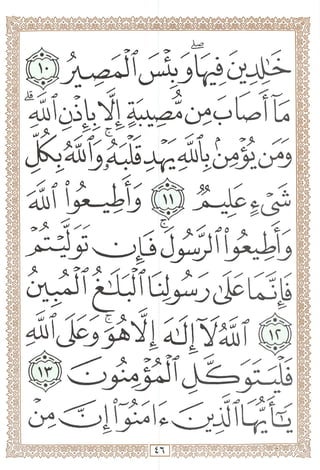 خَٰلِدِينَ فِيهَا ۖ وَبِئْسَ ٱلْمَصِيرُ ١٠
مَآ أَصَابَ مِن مُّصِيبَةٍ إِلَّا بِإِذْنِ ٱللَّهِ ۗ
وَمَن يُؤْمِنۢ بِٱللَّهِ يَهْدِ قَلْبَهُۥ ۚ وَٱللَّهُ بِكُلِّ
شَىْءٍ عَلِيمٌ ١١ وَأَطِيعُوا۟ ٱللَّهَ
وَأَطِيعُوا۟ ٱلرَّسُولَ ۚ فَإِن تَوَلَّيْتُمْ
فَإِنَّمَا عَلَىٰ رَسُولِنَا ٱلْبَلَٰغُ ٱلْمُبِينُ
١٢ ٱللَّهُ لَآ إِلَٰهَ إِلَّا هُوَ ۚ وَعَلَى ٱللَّهِ
فَلْيَتَوَكَّلِ ٱلْمُؤْمِنُونَ ١٣
يَٰٓأَيُّهَا ٱلَّذِينَ ءَامَنُوٓا۟ إِنَّ مِنْ
٤٦